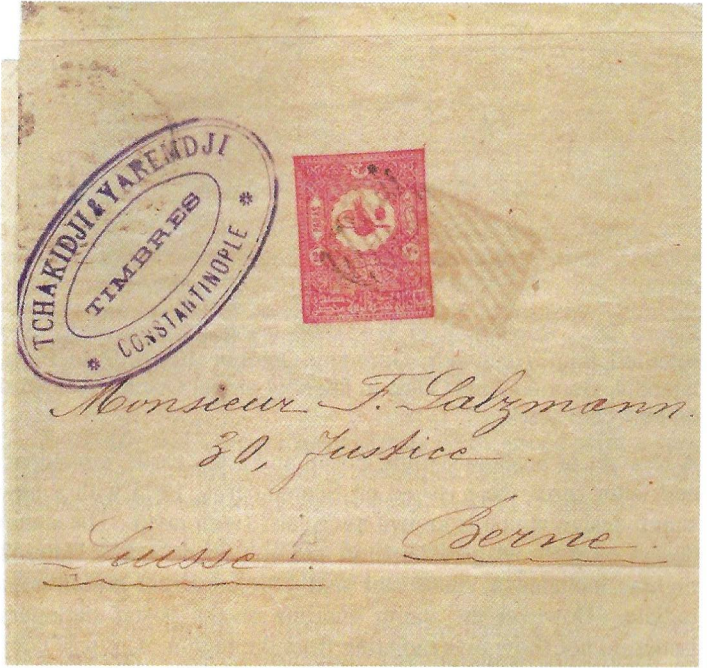 TCHAKIDJI & YAREMDJI
TIMBRES
* CONSTANTINOPLE *
PARAS
Monsieur F. Salzmann.
30, Justice
Suisse. Berne.